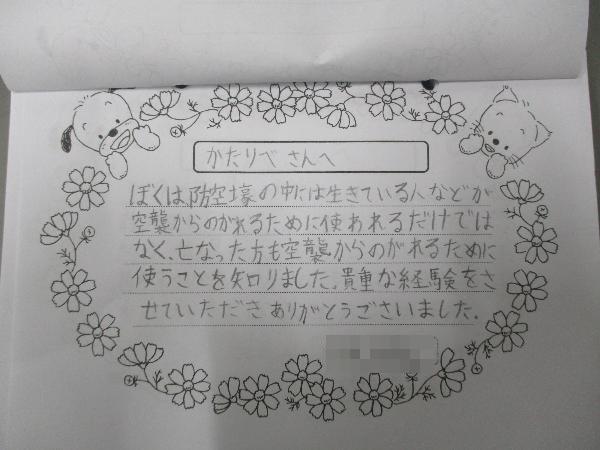 かたりべ さんへ
ぼくは、防空壕の中には生きている人などが
空襲からのがれるために使あれるだけでは
なく、亡なった方も空襲からのがれるために
使うことを知りました。貴重な経験をさ
せていただきありがとうございました。